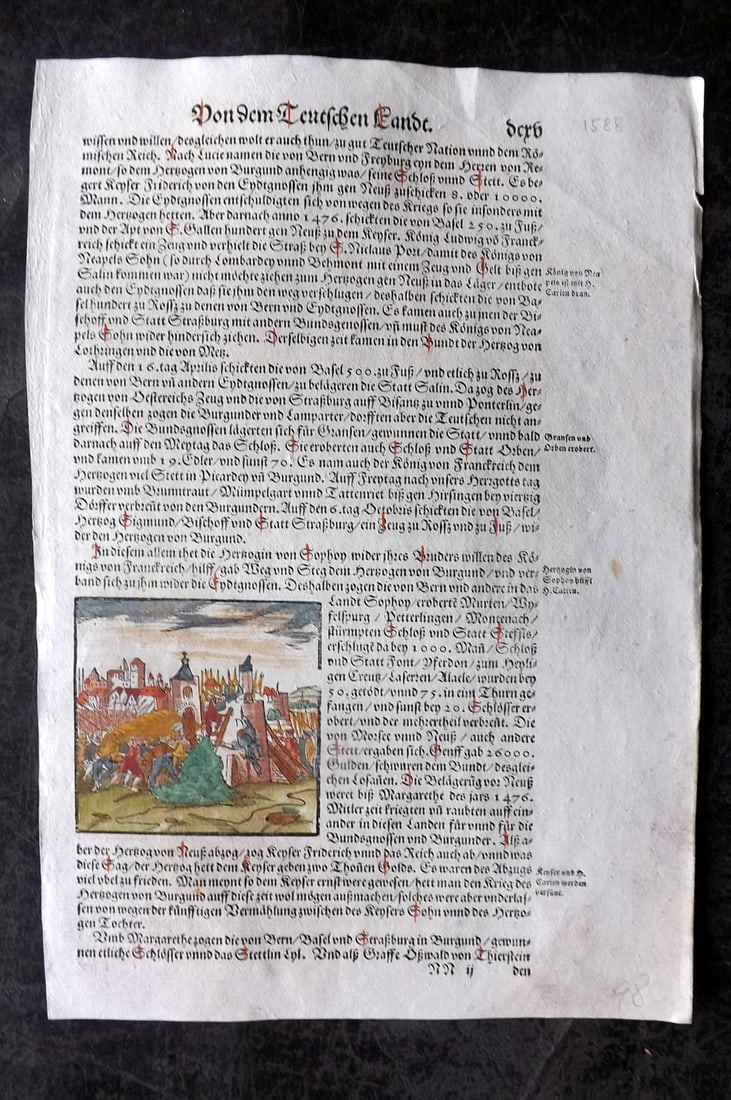 Von dem Teutschen Landt.
dcxv
1588
wissen vnd willen / desgleichen wolt er auch thun / zu gut Teutscher Nation vnnd dem Rö-
mischen Reich. Nach Lucie namen die von Bern vnd Freyburg eyn dem Herren von Re-
mont / so dem Hertzogen von Burgund anhengig was / seine Schloß vnnd Stett. Es be-
gert Keyser Friderich von den Eydtgnossen jhm gen Neuß zuschicken 8. oder 10000.
Mann. Die Eydtgnossen entschuldigten sich von wegen des Kriegs so sie insonders mit
dem Hertzogen hetten. Aber darnach anno 1476. schickten die von Basel 250. zu Fuß /
vnd der Apt von S. Gallen hundert gen Neuß zu dem Keyser. König Ludwig võ Franck-
reich schickt ein Zeug vnd verhielt die Straß bey S. Niclaus Port / damit des Königs von
Neapels Sohn (so durch Lombardey vnnd Behmont mit einem Zeug vnd Gelt biß gen
Salin kommen war) nicht möchte ziehen zum Hertzogen gen Neuß in das Läger / entbote
auch den Eydtgnossen daß sie jhm den weg verschlugen / deshalben schickten die von Ba-
sel hundert zu Rossz zu denen von Bern vnd Eydtgnossen. Es kamen auch zu jnen der Bi-
schoff vnd Statt Straßburg mit andern Bundsgenossen / vñ must des Königs von Nea-
pels Sohn wider hindersich ziehen. Derselbigen zeit kamen in den Bundt der Hertzog von
Lothringen vnd die von Metz.
König von Nea
pels ist mit H.
Carlen dran.
Auff den 16. tag Aprilis schickten die von Basel 500. zu Fuß / vnd etlich zu Rossz / zu
denen von Bern vñ andern Eydtgnossen / zu belägeren die Statt Salin. Da zog des Her-
tzogen von Oesterreichs Zeug vnd die von Straßburg auff Bisantz zu vnnd Ponterlin / ge-
gen denselben zogen die Burgunder vnd Lamparter / dorfften aber die Teutschen nicht an-
greiffen. Die Bundsgnossen lägerten sich für Gransen / gewunnen die Statt / vnnd bald
darnach auff den Meytag das Schloß. Sie eroberten auch Schloß vnd Statt Orben /
vnd kamen vmb 19. Edler / vnd sunst 70. Es nam auch der König von Franckreich dem
Hertzogen viel Stett in Picardey vñ Burgund. Auff Freytag nach vnsers Herrgotts tag
wurden vmb Brunntraut / Mümpelgart vnnd Tattenriet biß gen Hirsingen bey viertzig
Dörffer verbreñt von den Burgundern. Auff den 6. tag Octobris schickten die von Basel /
Hertzog Sigmund / Bischoff vnd Statt Straßburg / ein Zeug zu Rossz vnd zu Fuß / wi-
der den Hertzogen von Burgund.
Gransen vnd
Orben erobert.
In diesem allem thet die Hertzogin von Sophoy wider jhres Bruders willen des Kö-
nigs von Franckreich / hilff / gab Weg vnd Steg dem Hertzogen von Burgund / vnd ver-
band sich zu jhn wider die Eydtgnossen. Deshalben zogen die von Bern vnd andere in das
Hertzogin von
Sophoy hilfft
H. Carlen.
Landt Sophoy / eroberte Murten / Wy-
felspurg / Petterlingen / Montenach /
stürmpten Schloß vnd Statt Steffis /
erschlugẽ da bey 1000. Mañ / Schloß
vnd Statt Font / Yferdon / zum Heyli-
gen Creutz / Laserren / Alacle / wurden bey
50. getödt / vnnd 75. in eim Thurn ge-
fangen / vnd sunst bey 20. Schlösser er-
obert / vnd der mehrertheil verbreñt. Die
von Morsee vnnd Neuß / auch andere
Stett / ergaben sich. Genff gab 26000.
Gulden / schwuren dem Bundt / desglei-
chen Losañen. Die Belägerũg vor Neuß
weret biß Margarethe des jars 1476.
Mitler zeit kriegten vñ raubten auff ein-
ander in diesen Landen für vnnd für die
Bundsgnossen vnd Burgunder. Alß a-
ber der Hertzog von Neuß abzog / zog Keyser Friderich vnnd das Reich auch ab / vnnd was
diese Sag / der Hertzog hett dem Keyser geben zwo Thoñen Golds. Es waren des Abzugs
viel vbel zu frieden. Man meynt so dem Keyser ernst were gewesen / hett man den Krieg des
Hertzogen von Burgund auff diese zeit wol mögen außmachen / solches were aber vnderlas-
sen von wegen der künfftigen Vermählung zwischen des Keysers Sohn vnnd des Hertzo-
gen Tochter.
Keyser vnd H.
Carlen werden
versünt.
Vmb Margarethe zogen die von Bern / Basel vnd Straßburg in Burgund / gewun-
nen etliche Schlösser vnnd das Stettlin Lyl. Vnd alß Graffe Oßwald von Thierstein
NN ij
den
98